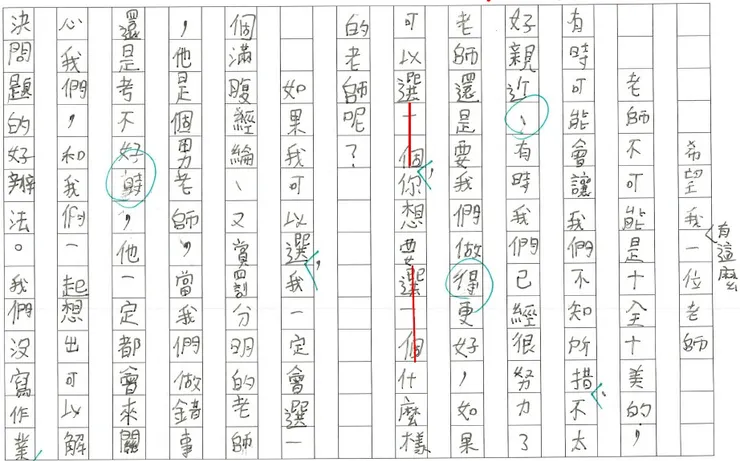 希望我一位老師
有這麼
老師不可能是十全十美的，
有時可能會讓我們不知所措不太
好親近、有時我們已經很努力了
老師還是要我們做得更好，如果
可以選一個你想要選一個什麼樣
的老師呢？
如果我可以選我一定會選一
個滿腹經綸、又賞罰分明的老師
，他是個男老師，當我們做錯事
還是考不好時，他一定都會來關
心我們，和我們一起想出可以解
決問題的好辦法。我們沒寫作業